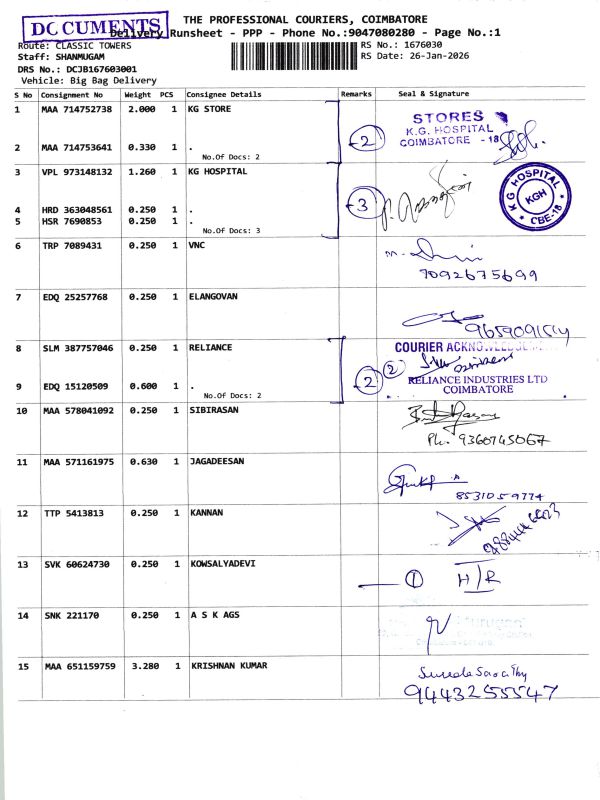 DOCUMENTS
THE PROFESSIONAL COURIERS, COIMBATORE
Delivery Runsheet - PPP - Phone No.:9047080280 - Page No.:1
Route: CLASSIC TOWERS
RS No.: 1676030
Staff: SHANMUGAM
RS Date: 26-Jan-2026
DRS No.: DCJB167603001
Vehicle: Big Bag Delivery
S No Consignment No Weight PCS Consignee Details Remarks Seal & Signature
1 MAA 714752738 2.000 1 KG STORE
STORES
K.G. HOSPITAL
COIMBATORE - 18
2
2 MAA 714753641 0.330 1 .
No.Of Docs: 2
3 VPL 973148132 1.260 1 KG HOSPITAL
K G HOSPITAL
KGH
CBE-18
3
4 HRD 363048561 0.250 1 .
5 HSR 7690853 0.250 1 .
No.Of Docs: 3
6 TRP 7089431 0.250 1 VNC
7092675699
7 EDQ 25257768 0.250 1 ELANGOVAN
8 SLM 387757046 0.250 1 RELIANCE
COURIER ACKNOWLEDGEMENT
2
2
RELIANCE INDUSTRIES LTD
COIMBATORE
9 EDQ 15120509 0.600 1 .
No.Of Docs: 2
10 MAA 578041092 0.250 1 SIBIRASAN
Ph: 9360745067
11 MAA 571161975 0.630 1 JAGADEESAN
8531059774
12 TTP 5413813 0.250 1 KANNAN
13 SVK 60624730 0.250 1 KOWSALYADEVI
1 H/R
14 SNK 221170 0.250 1 A S K AGS
15 MAA 651159759 3.280 1 KRISHNAN KUMAR
9443255547